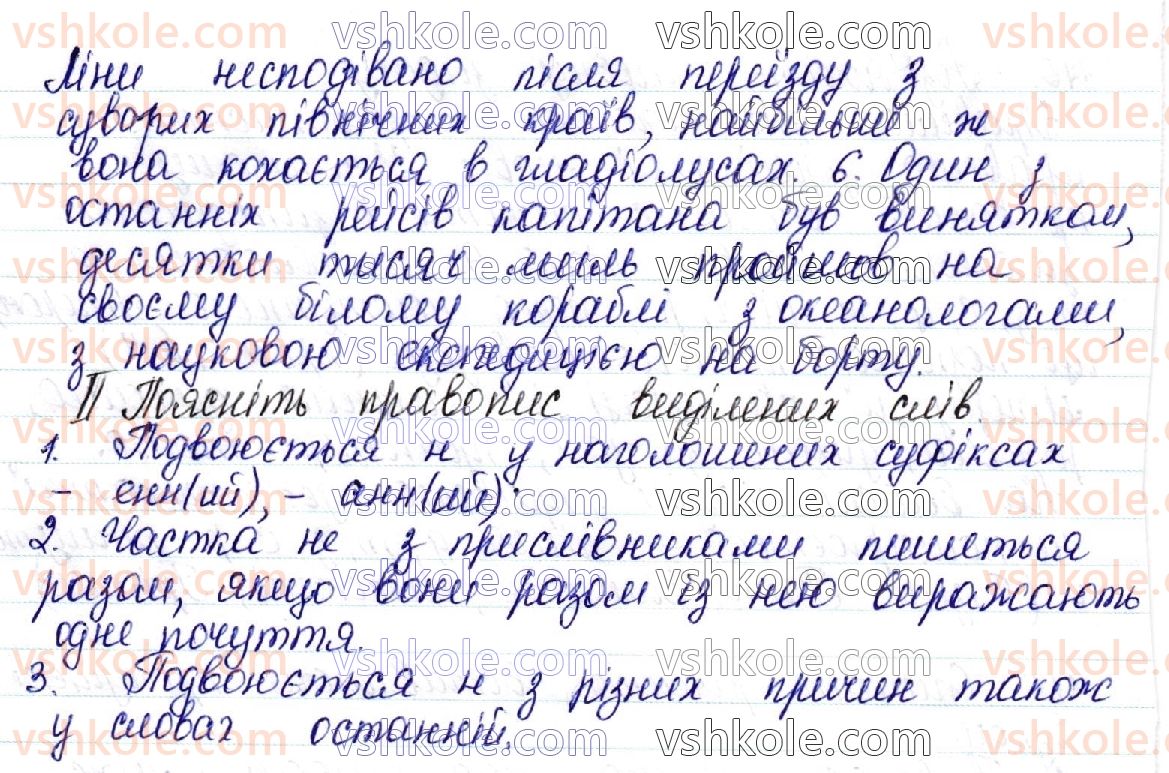 Ліни несподівано після переїзду з
суворих північних країв, найбільш ж
вона кохається в гладіолусах. 6. Один з
останніх рейсів капітана був винятком,
десятки тисяч миль пройшов на
своєму білому кораблі з океанологами,
з науковою експедицією на борту.
II Поясніть правопис виділених слів
1. Подвоюється н у наголошених суфіксах
- енн(ий), - анн(ий).
2. Частка не з прислівниками пишеться
разом, якщо вони разом із нею виражають
одне почуття.
3. Подвоюється н з різних причин також
у словах останній.